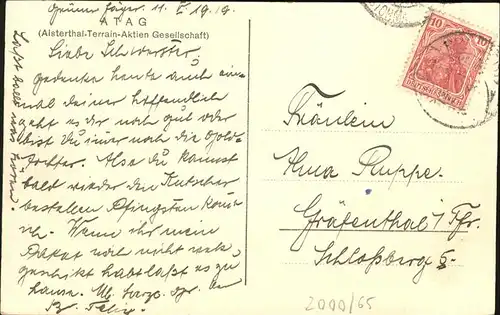 Grünen Jäger. 11. V. 1919.
ATAG
(Alsterthal-Terrain-Aktien Gesellschaft)
Liebe Schwester,
gedenke heute auch ein-
mal deiner hoffendlich
geht es dir noch gut oder
bist du immer noch die Gold-
tochter. Also du kannst
bald wieder den Kutscher
bestellen Pfingsten komm
ich. Wenn ihr mein
Paket noch nicht weg-
geschikt habt laßt es zu
hause.
Br. Felix.
Laßt bald was hören.
10 10
DEUTSCHES REICH
Fräulein
Alma Ruppe.
Gräfenthal i/Thr.
Schloßberg 5.
2000/65